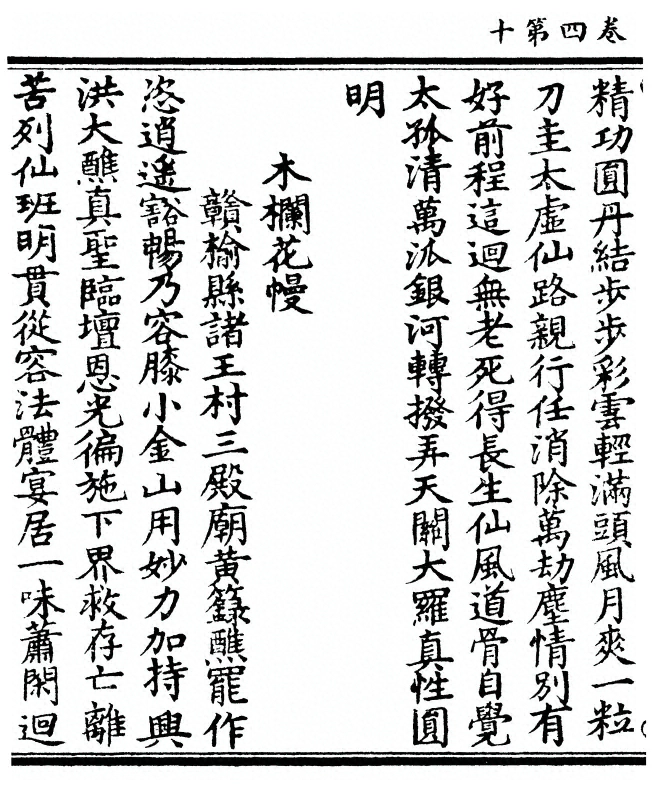 十第四卷
精功圓丹結步步彩雲輕滿頭風月爽一粒
刀圭太虛仙路親行任消除萬劫塵情別有
好前程這迴無老死得長生仙風道骨自覺
太孤清萬派銀河轉撥弄天關大羅真性圓
明
木欄花幔
贛榆縣諸王村三殿廟黃籙醮罷作
恣逍遙豁暢乃容膝小金山用妙力加持興
洪大醮真聖臨壇恩光徧施下界救存亡離
苦列仙班明貫從容法體宴居一味蕭閑迴